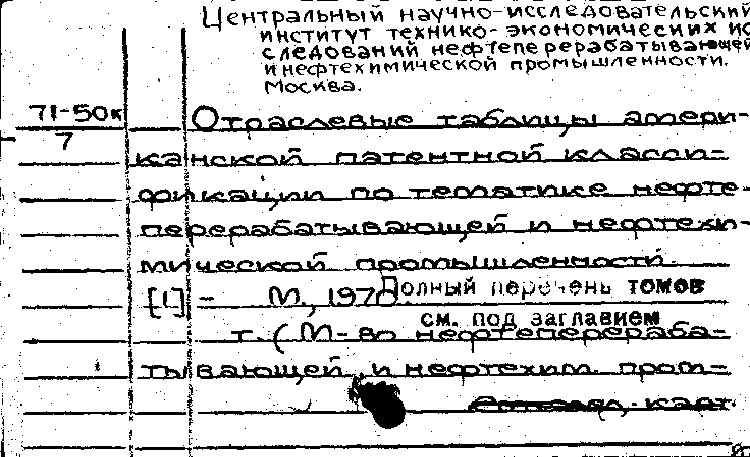 Центральный научно-исследовательский
институт технико-экономических ис
следований нефтеперерабатывающей
и нефтехимической промышленности.
Москва.
71-50к
7
Отраслевые таблицы амери-
канской патентной класси-
фикации по тематике нефте-
перерабатывающей и нефтехи-
мической промышленности.
[1] - М., 197
Полный перечень томов
см. под заглавием
т. (М-во нефтеперераба-
тывающей и нефтехим. пром-
карт.